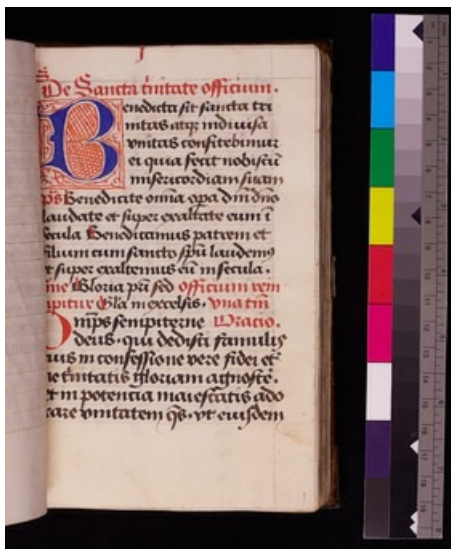 De Sancta trinitate officium.
Benedicta sit sancta tri
nitas atqz indiuisa
vnitas confitebimur
ei quia fecit nobiscū
misericordiam suam
ps Benedicite omnia opa dnī dno
laudate et super exaltate eum ī
secula Benedicimus patrem et
filium cum sancto spū laudemꝰ
et super exaltemus eū in secula.
Gloria pri sed officium rem
ipitur Gla in excelsis. vna tm
Omps sempiterne Oracio.
deus. qui dedisti famulis
tuis in confessione vere fidei et
ne trinitatis gloriam agnosce.
et in potencia maiestatis ado
rare vnitatem qs. vt eiusdem